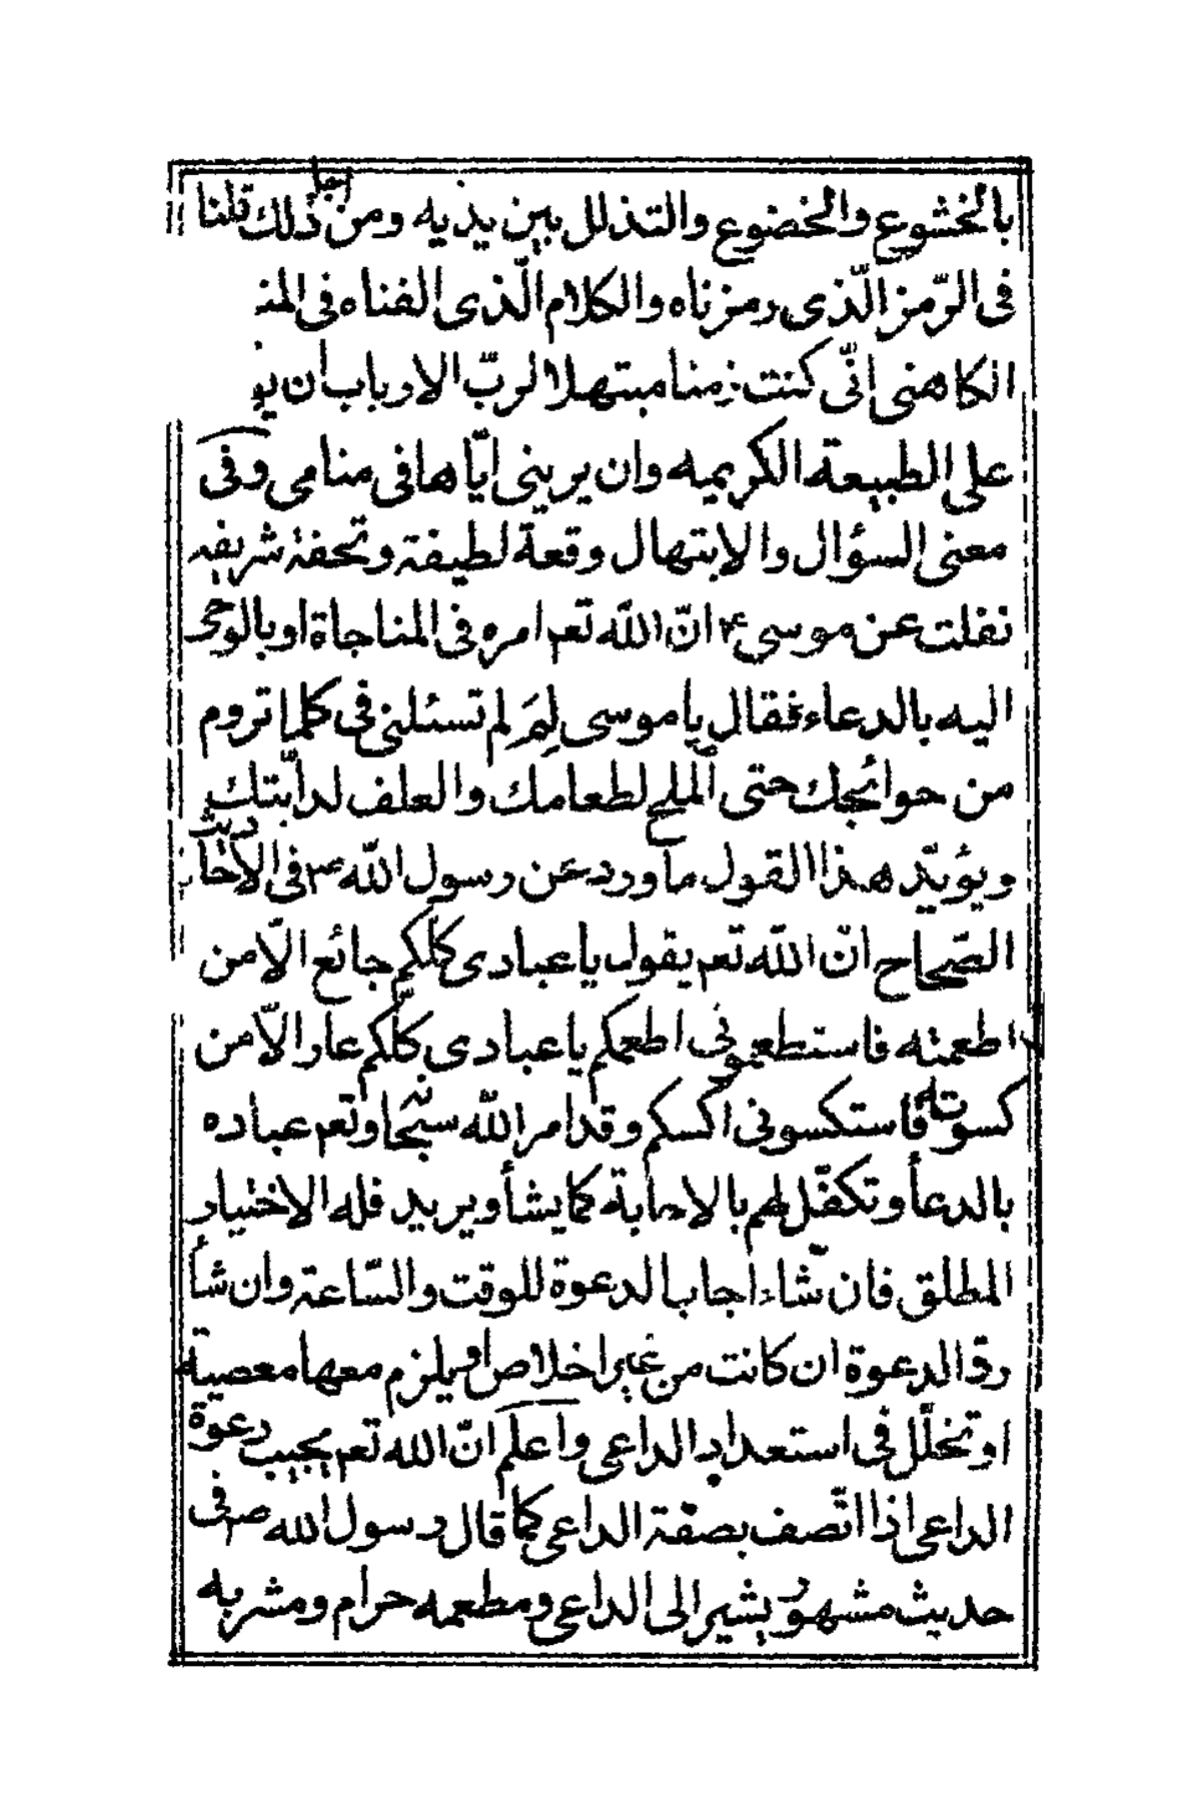 بالخشوع والخضوع والتذلل بين يديه ومن اجل ذلك قلنا
فى الرّمز الّذى رمزناه والكلام الّذى الفناه فى
الكاهنى انّى كنت زمنا مبتهلا لربّ الارباب ان
على الطبيعة الكريمه وان يرينى ايّاها فى منامى وفى
معنى السؤال والابتهال وقعة لطيفة وتحفة شريفه
نقلت عن موسى ع انّ الله تعم امره فى المناجاة او بالوحى
اليه بالدعاء فقال يا موسى لِمَ لم تسئلنى فى كلما تروم
من حوائجك حتى الملح لطعامك والعلف لدابّتك
ويؤيّد هذا القول ما ورد عن رسول الله ص فى الاحاديث
الصّحاح انّ الله تعم يقول يا عبادى كلّكم جائع الّا من
اطعمته فاستطعمونى اطعمكم يا عبادى كلّكم عار الّا من
كسوته فاستكسونى اكسكم وقد امر الله سبحا وتعم عباده
بالدعأ وتكفّل لهم بالاجابة كما يشأ ويريد فله الاختيار
المطلق فان شاء اجاب الدعوة للوقت والسّاعة وان شأ
ردّ الدعوة ان كانت من غير اخلاص او يلزم معها معصية
او تخلّل فى استعداد الداعى واعلم انّ الله تعم يجيب دعوة
الداعى اذا اتّصف بصفة الداعى كما قال رسول الله ص فى
حديث مشهور يشير الى الداعى ومطعمه حرام ومشربه